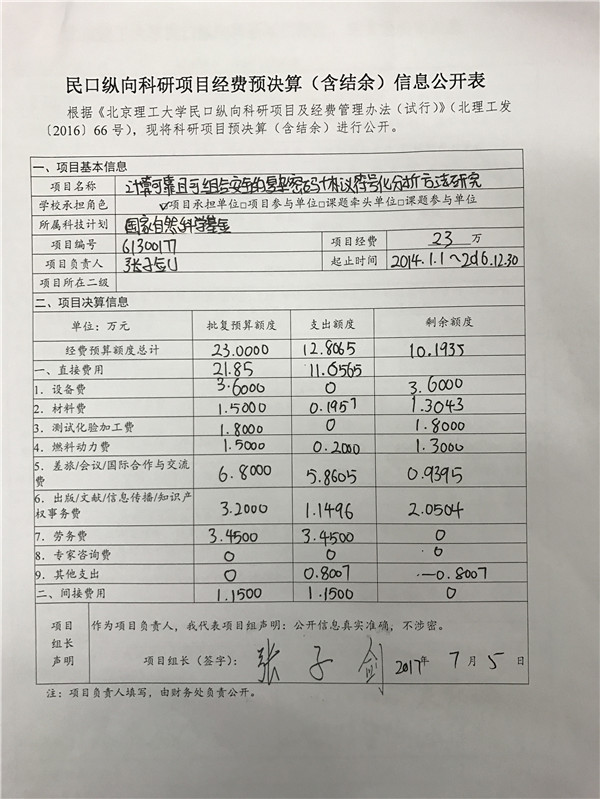 民口纵向科研项目经费预决算（含结余）信息公开表
根据《北京理工大学民口纵向科研项目及经费管理办法（试行）》（北理工发
〔2016〕66号），现将科研项目预决算（含结余）进行公开。
一、项目基本信息
项目名称 计算可靠且可组合安全的复杂密码协议符号化分析方法研究
学校承担角色 ☑项目承担单位□项目参与单位□课题牵头单位□课题参与单位
所属科技计划 国家自然科学基金
项目编号 61300177 项目经费 23 万
项目负责人 张子剑 起止时间 2014.1.1～2016.12.30
项目所在二级
二、项目决算信息
单位：万元 批复预算额度 支出额度 剩余额度
经费预算额度总计 23.0000 12.8065 10.1935
一、直接费用 21.85 11.6565
1．设备费 3.6000 0 3.6000
2．材料费 1.5000 0.1957 1.3043
3．测试化验加工费 1.8000 0 1.8000
4．燃料动力费 1.5000 0.2000 1.3000
5．差旅/会议/国际合作与交流
费 6.8000 5.8605 0.9395
6．出版/文献/信息传播/知识产
权事务费 3.2000 1.1496 2.0504
7．劳务费 3.4500 3.4500 0
8．专家咨询费 0 0 0
9．其他支出 0 0.8007 -0.8007
二、间接费用 1.1500 1.1500 0
项目
组长
声明
作为项目负责人，我代表项目组声明：公开信息真实准确，不涉密。
项目组长（签字）： 张子剑 2017年 7 月 5 日
注：项目负责人填写，由财务处负责公开。